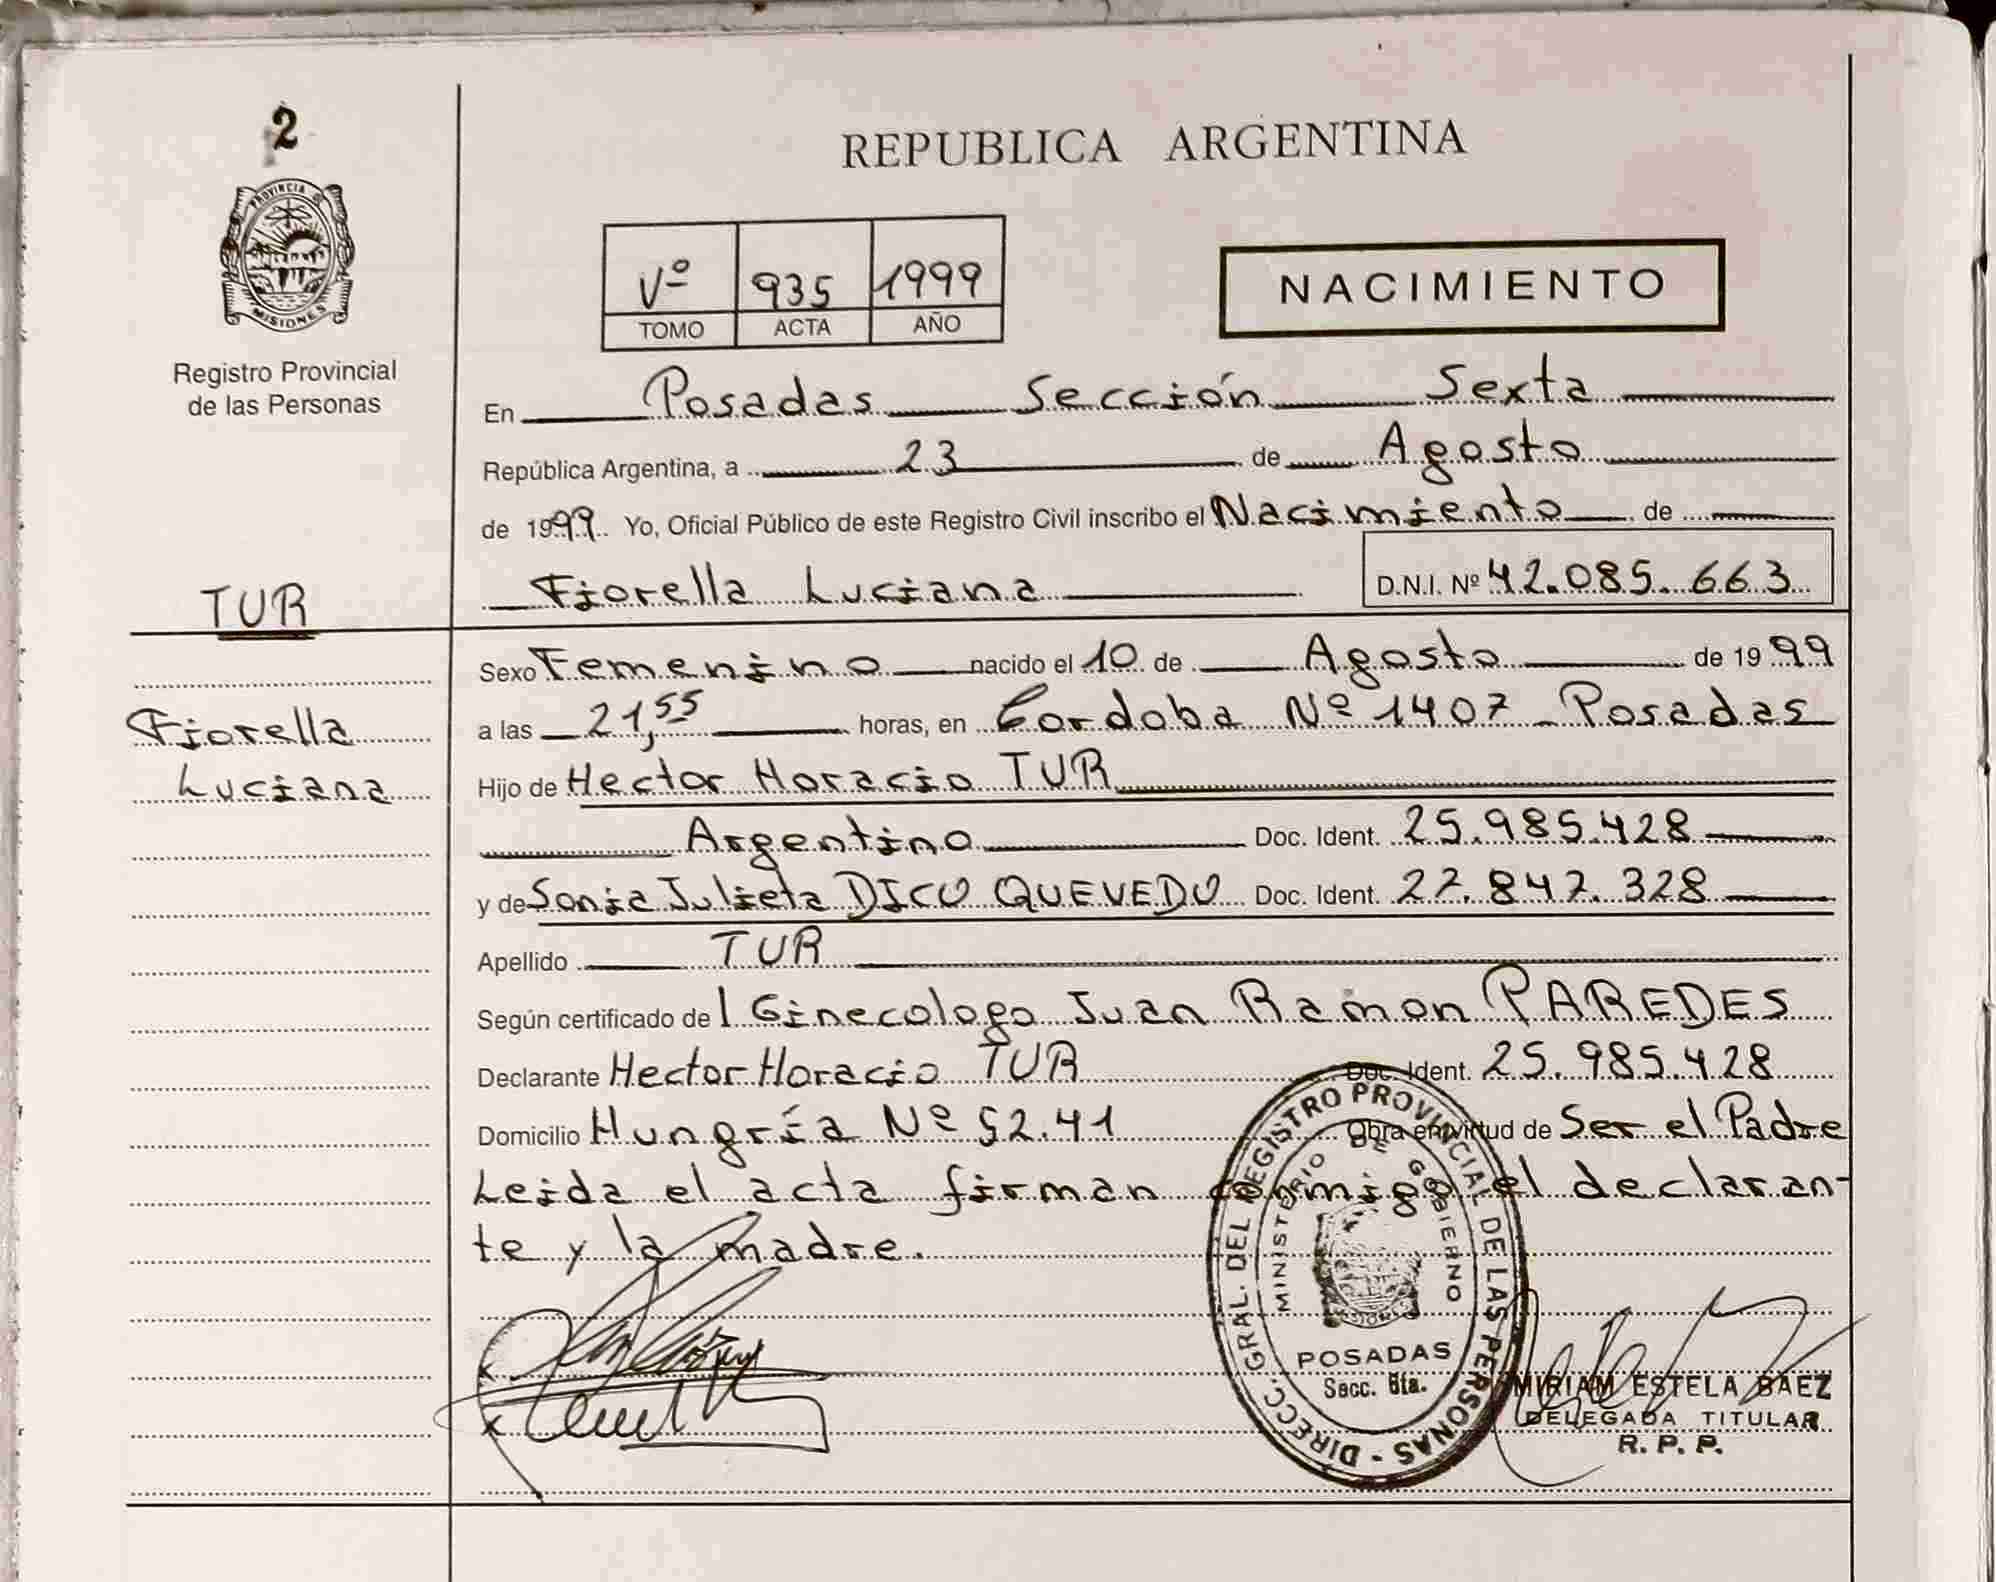 2
PROVINCIA DE
MISIONES
Registro Provincial
de las Personas
REPUBLICA ARGENTINA
Vº 935 1999
TOMO ACTA AÑO
NACIMIENTO
En Posadas Sección Sexta
República Argentina, a 23 de Agosto
de 1999. Yo, Oficial Público de este Registro Civil inscribo el Nacimiento de
Fiorella Luciana D.N.I. Nº 42.085.663
TUR
Fiorella
Luciana
Sexo Femenino nacido el 10 de Agosto de 1999
a las 21,55 horas, en Cordoba Nº 1407 - Posadas
Hijo de Hector Horacio TUR
Argentino Doc. Ident. 25.985.428
y de Sonia Julieta DICO QUEVEDO Doc. Ident. 27.847.328
Apellido TUR
Según certificado del Ginecologo Juan Ramon PAREDES
Declarante Hector Horacio TUR Doc. Ident. 25.985.428
Domicilio Hungría Nº 52.41 Obra en virtud de Ser el Padre
Leida el acta firman conmigo el declaran-
te y la madre.
DIRECC. GRAL. DEL REGISTRO PROVINCIAL DE LAS PERSONAS -
MINISTERIO DE GOBIERNO
POSADAS
Secc. 6ta.
MIRIAM ESTELA BAEZ
DELEGADA TITULAR
R. P. P.